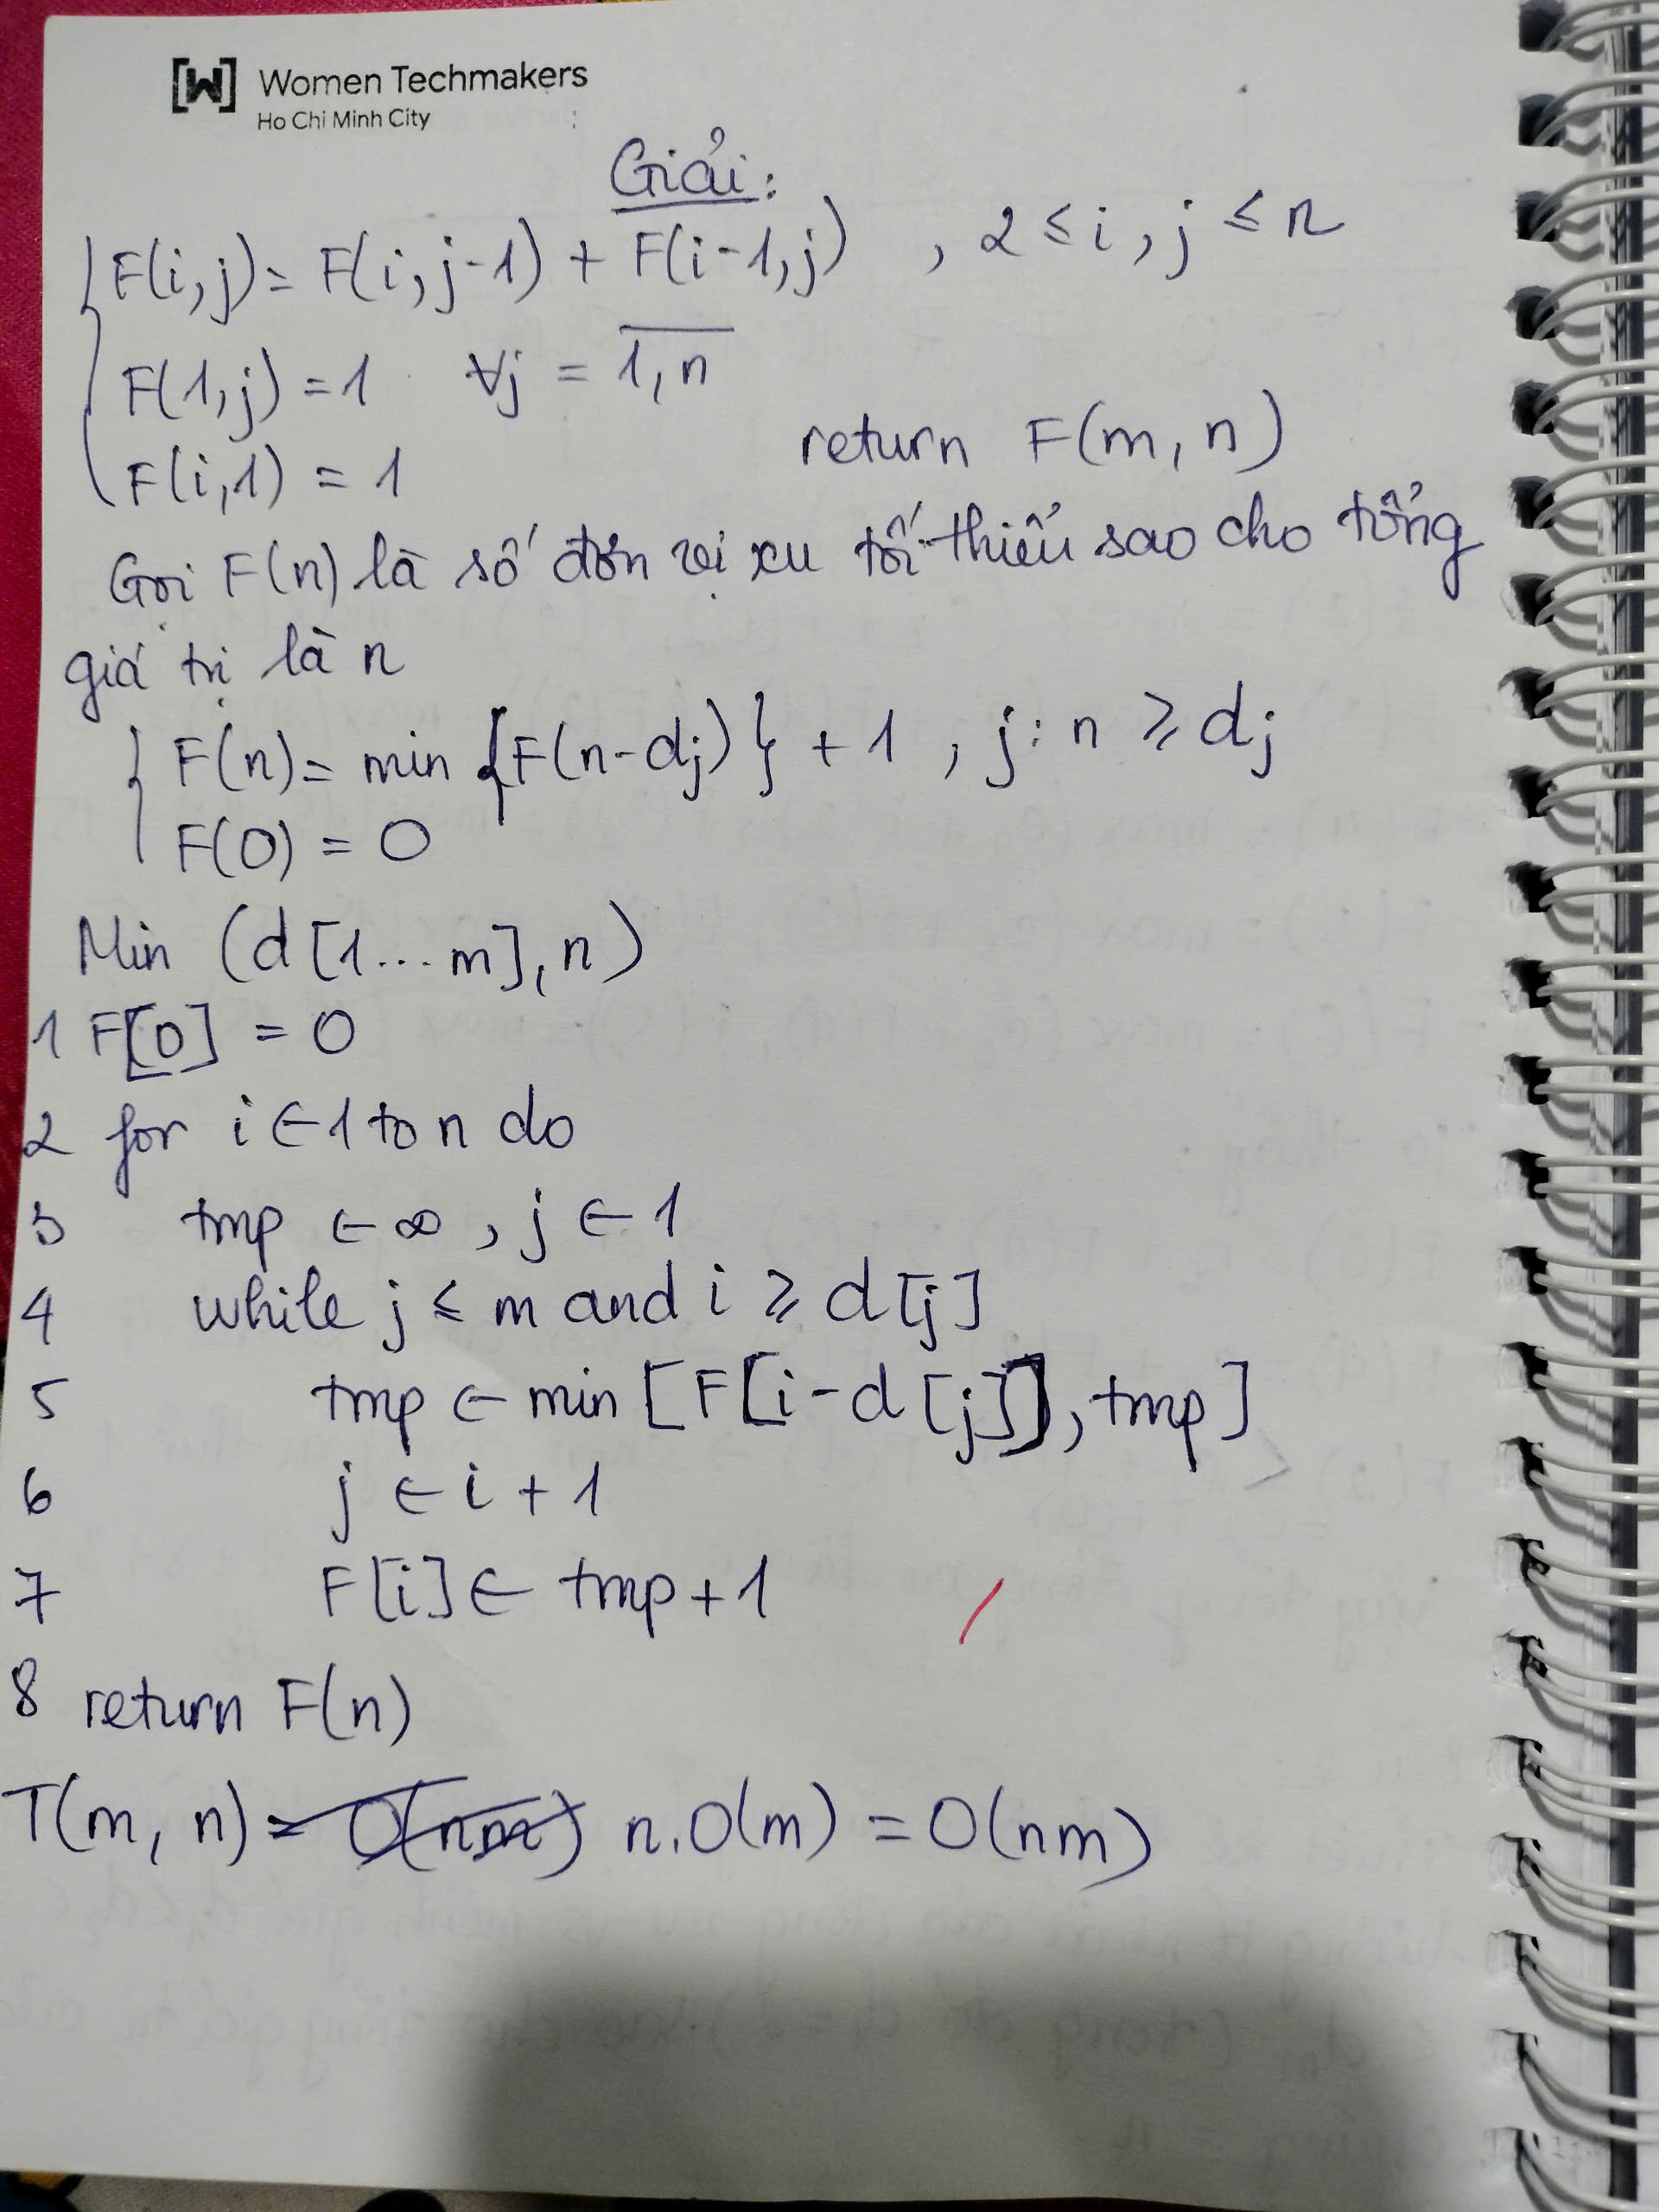 [W] Women Techmakers
Ho Chi Minh City
Giải:
F(i,j) = F(i,j-1) + F(i-1,j) , 2 ≤ i, j ≤ n
F(1,j) = 1 ∀j = 1,n
return F(m, n)
F(i,1) = 1
Gọi F(n) là số đơn vị xu tối thiểu sao cho tổng
giá trị là n
F(n) = min {F(n-dj)} + 1 , j: n ≥ dj
F(0) = 0
Min (d[1...m], n)
1 F[0] = 0
2 for i ← 1 to n do
3 tmp ← ∞, j ← 1
4 while j ≤ m and i ≥ d[j]
5 tmp ← min [F[i-d[j]], tmp]
6 j ← i + 1
7 F[i] ← tmp + 1
8 return F(n)
T(m, n) = O(nm) n.O(m) = O(nm)